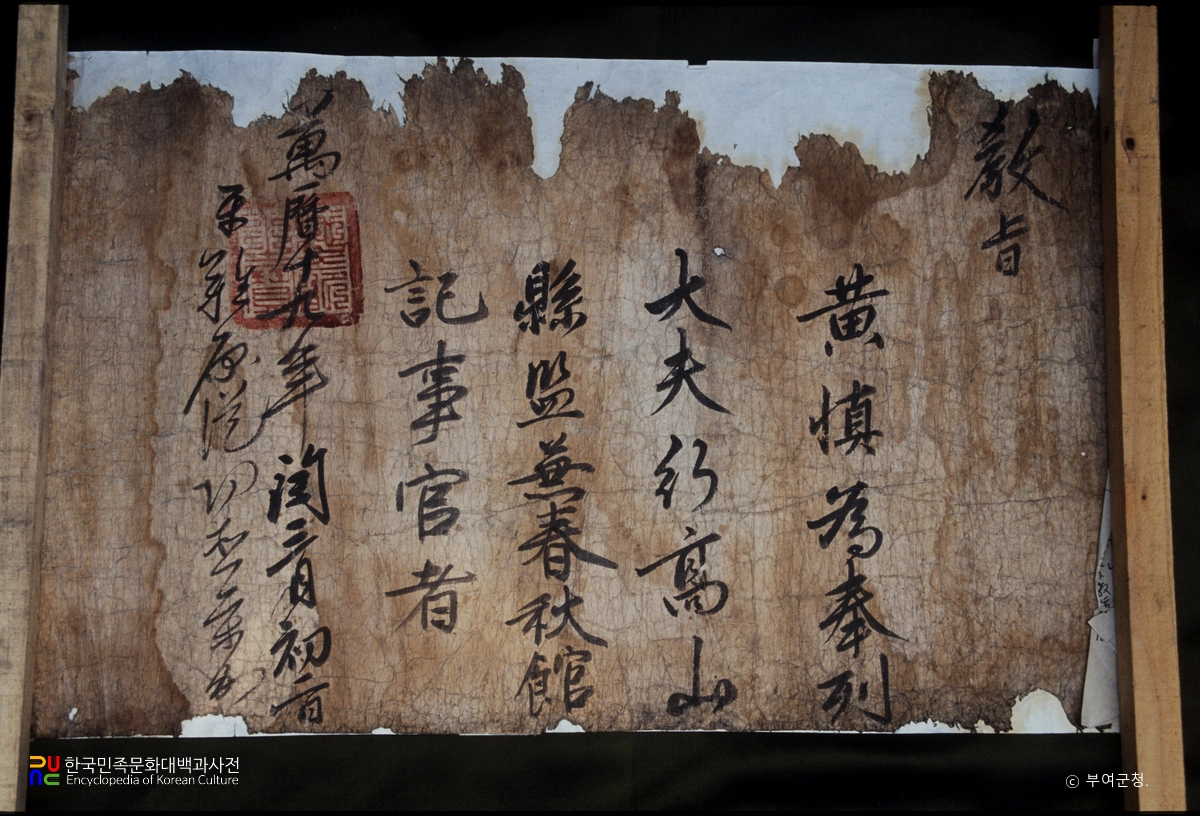 敎旨
黃愼爲奉列
大夫行高山
縣監兼春秋館
記事官者
萬曆十九年閏三月初一日
平難原從功臣
한국민족문화대백과사전
Encyclopedia of Korean Culture
© 부여군청.